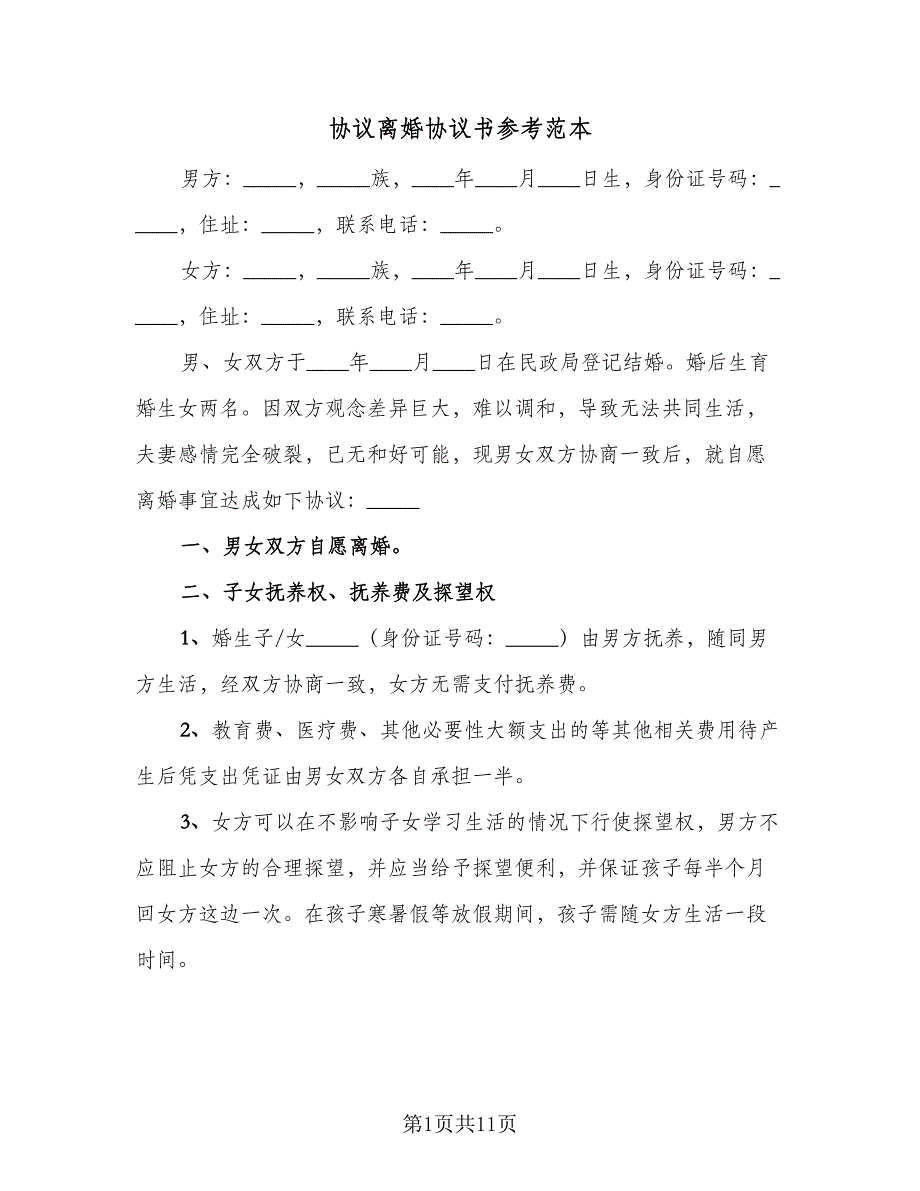 协议离婚协议书参考范本
男方：_____，_____族，____年____月____日生，身份证号码：_
____，住址：_____，联系电话：_____。
女方：_____，_____族，____年____月____日生，身份证号码：_
____，住址：_____，联系电话：_____。
男、女双方于____年____月____日在民政局登记结婚。婚后生育
婚生女两名。因双方观念差异巨大，难以调和，导致无法共同生活，
夫妻感情完全破裂，已无和好可能，现男女双方协商一致后，就自愿
离婚事宜达成如下协议：_____
一、男女双方自愿离婚。
二、子女抚养权、抚养费及探望权
1、婚生子/女_____（身份证号码：_____）由男方抚养，随同男
方生活，经双方协商一致，女方无需支付抚养费。
2、教育费、医疗费、其他必要性大额支出的等其他相关费用待产
生后凭支出凭证由男女双方各自承担一半。
3、女方可以在不影响子女学习生活的情况下行使探望权，男方不
应阻止女方的合理探望，并应当给予探望便利，并保证孩子每半个月
回女方这边一次。在孩子寒暑假等放假期间，孩子需随女方生活一段
时间。
第1页共11页